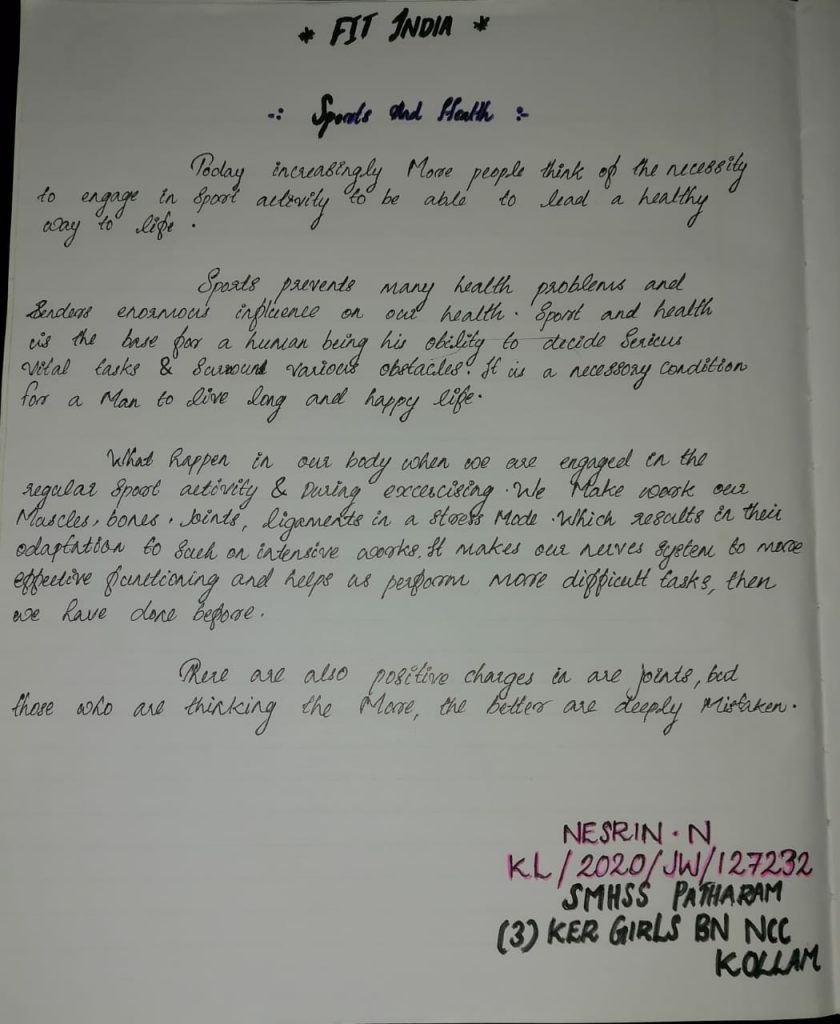 * FIT INDIA *
-: Sports And Health :-
Today increasingly More people think of the necessity
to engage in Sport activity to be able to lead a healthy
way to life .
Sports prevents many health problems and
Senders enormous influence on out health . Sport and health
is the base for a human being his obility to decide Serious
vital tasks & Surround various obstacles. It is a necessory condition
for a Man to live long and happy life.
What happen in our body when we are engaged in the
regular Sport activity & During excercising . We Make work our
Muscles, bones , Joints, ligaments in a Stress Mode . Which results in their
adaptation to Such on intensive works. It makes our nerves System to more
effective functioning and helps us perform more difficult tasks, then
we have done before .
There are also positive charges in are joints, bud
those who are thinking the More, the better are deeply Mistaken .
NESRIN . N
KL/2020/JW/127232
SMHSS PATHARAM
(3) KER GIRLS BN NCC
KOLLAM